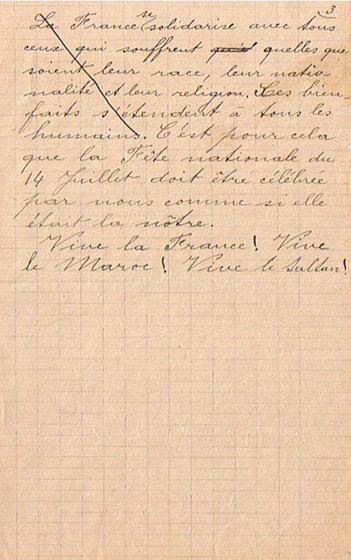 3
La France se solidarise avec tous
ceux qui souffrent quelles que
soient leur race, leur natio-
nalité et leur religion. Ses bien-
faits s'étendent à tous les
humains. C'est pour cela
que la Fête nationale du
14 Juillet doit être célébrée
par nous comme si elle
était la nôtre.
Vive la France! Vive
le Maroc! Vive le Sultan!